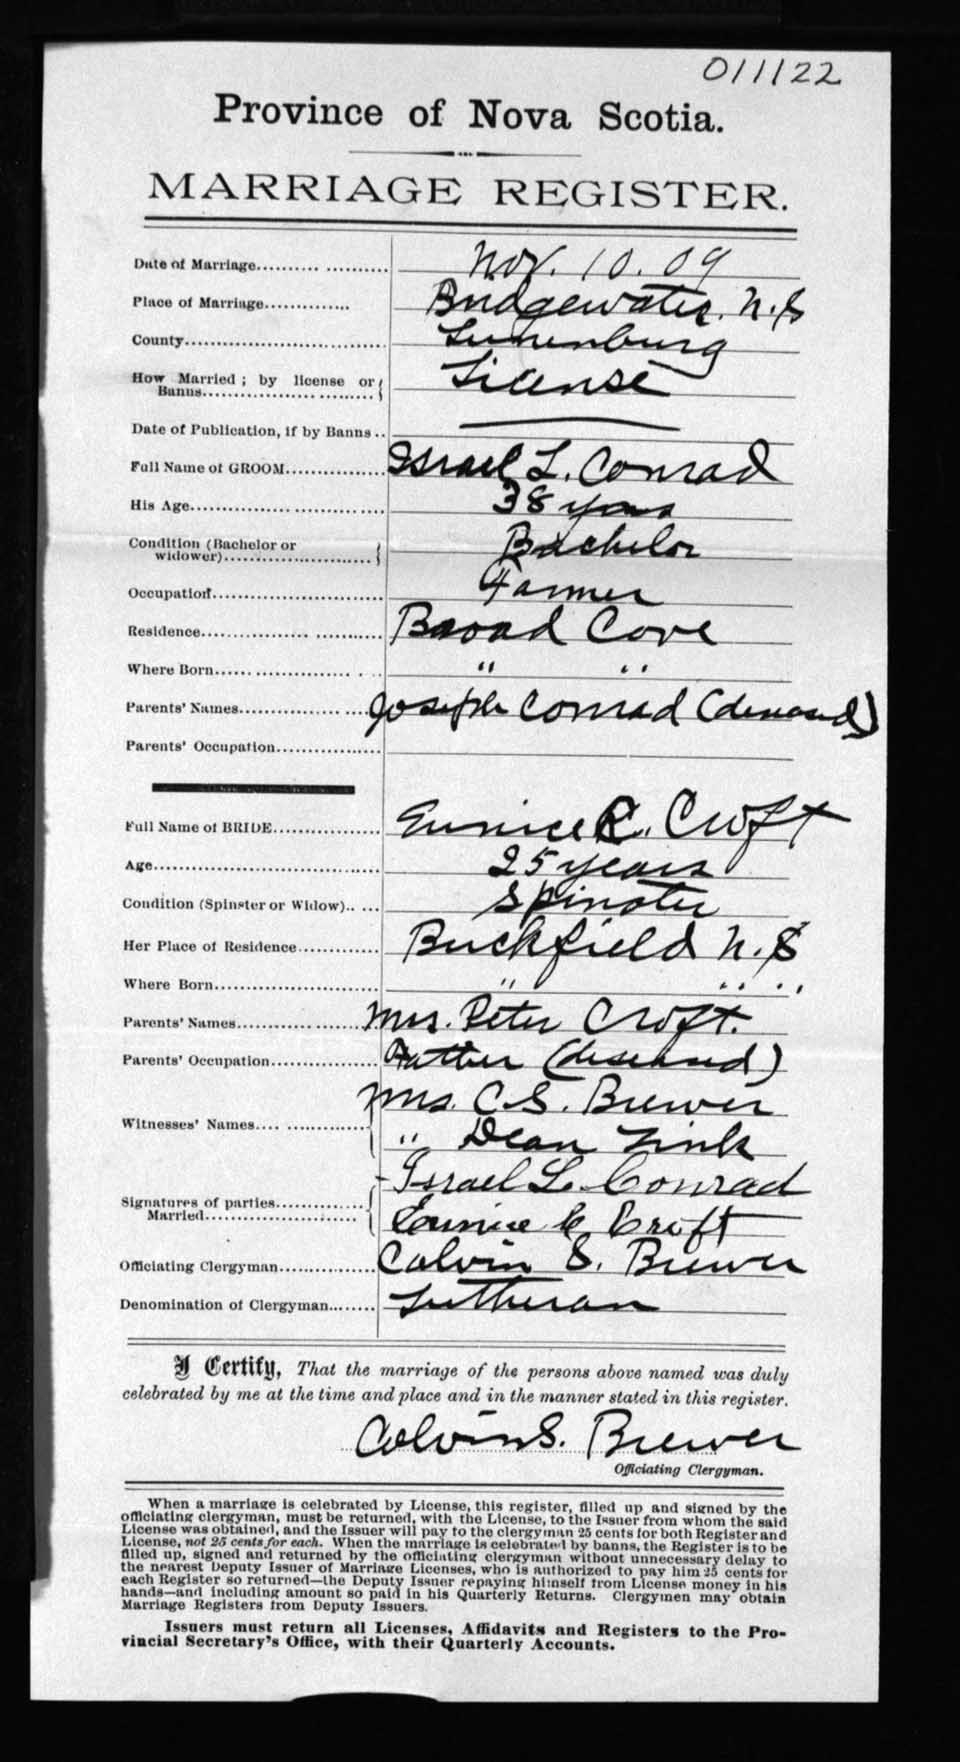 011122
Province of Nova Scotia.
MARRIAGE REGISTER.
Date of Marriage.................... Nov. 10. 09
Place of Marriage............. Bridgewater. N.S
County.............................. Lunenburg
How Married; by license or License
Banns..............................
Date of Publication, if by Banns ..
Full Name of GROOM.............. Israel L. Conrad
His Age............................ 38 years
Condition (Bachelor or Bachelor
widower)........................
Occupation.......................... Farmer
Residence........................... Broad Cove
Where Born...................... " "
Parents' Names................... Joseph Conrad (deceased)
Parents' Occupation...............
Full Name of BRIDE............... Eunice C. Croft
Age................................. 25 years
Condition (Spinster or Widow)..... Spinster
Her Place of Residence............ Buckfield N.S
Where Born........................ " " "
Parents' Names.................... Mrs. Peter Croft.
Parents' Occupation............... Father (deseased)
Mrs. C.S. Brewer
Witnesses' Names.... ..............
" Dean Zink
Israel L. Conrad
Signatures of parties.............
Married.......................
Eunice C Croft
Officiating Clergyman.............. Calvin S. Brewer
Denomination of Clergyman........ Lutheran
I Certify, That the marriage of the persons above named was duly
celebrated by me at the time and place and in the manner stated in this register.
Calvin S. Brewer
Officiating Clergyman.
When a marriage is celebrated by License, this register, filled up and signed by the
officiating clergyman, must be returned, with the License, to the Issuer from whom the said
License was obtained, and the Issuer will pay to the clergyman 25 cents for both Register and
License, not 25 cents for each. When the marriage is celebrated by banns, the Register is to be
filled up, signed and returned by the officiating clergyman without unnecessary delay to
the nearest Deputy Issuer of Marriage Licenses, who is authorized to pay him 25 cents for
each Register so returned—the Deputy Issuer repaying himself from License money in his
hands—and including amount so paid in his Quarterly Returns. Clergymen may obtain
Marriage Registers from Deputy Issuers.
Issuers must return all Licenses, Affidavits and Registers to the Pro-
vincial Secretary's Office, with their Quarterly Accounts.